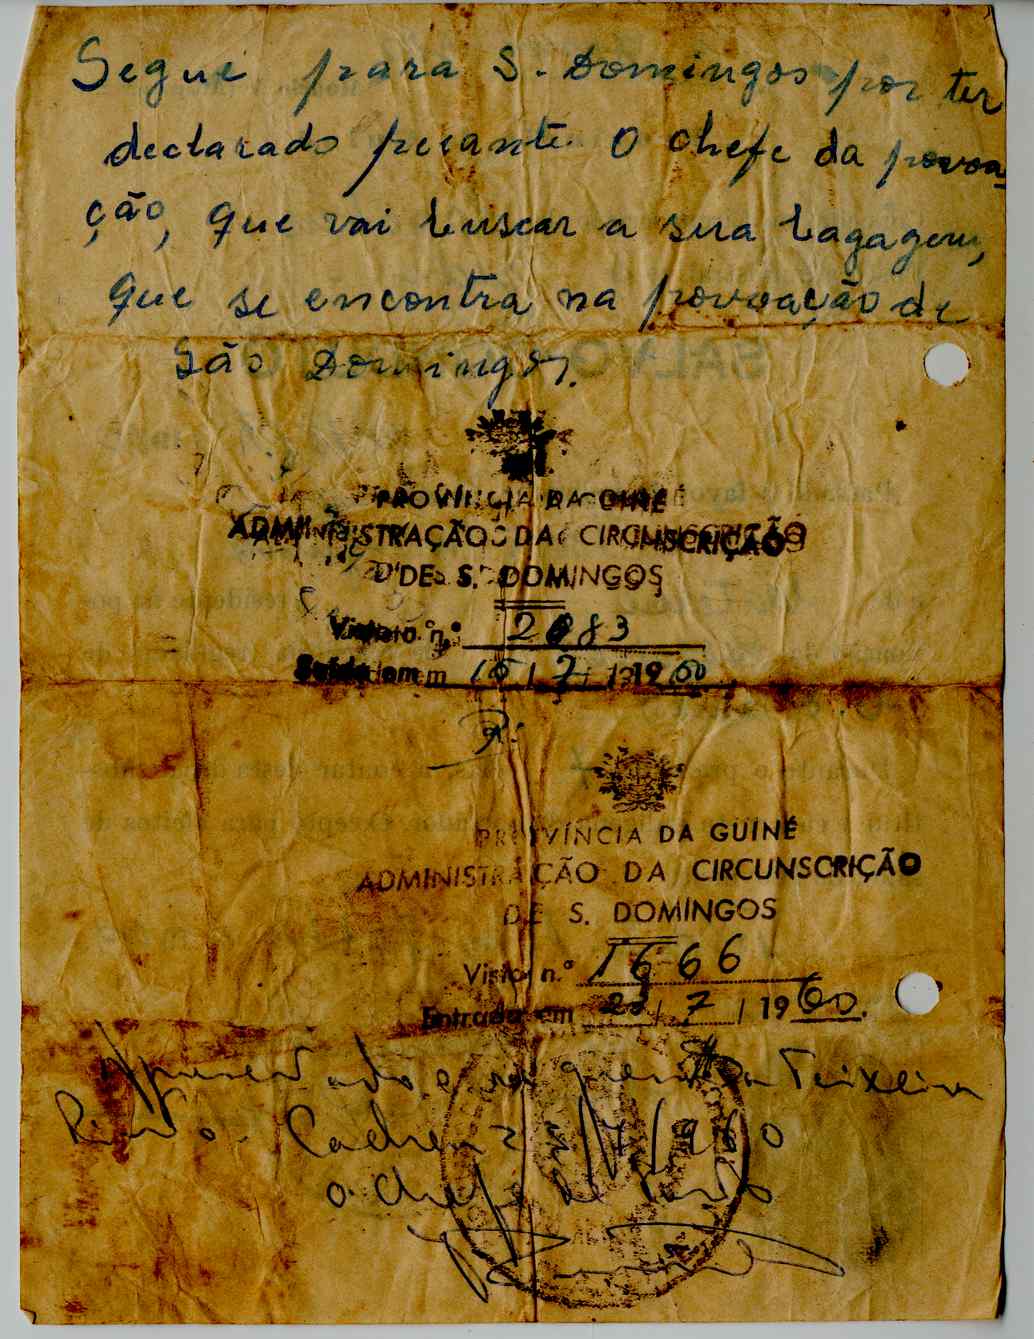 Segue para S. Domingos por ter
declarado perante o chefe da povoa-
ção, que vai buscar a sua bagagem,
que se encontra na povoação de
São Domingos.
PROVÍNCIA DA GUINÉ
ADMINISTRAÇÃO DA CIRCUNSCRIÇÃO
DE S. DOMINGOS
Visto n.º 2083
Saida em 15/7/1960
PROVÍNCIA DA GUINÉ
ADMINISTRAÇÃO DA CIRCUNSCRIÇÃO
DE S. DOMINGOS
Visto n.º 1666
Entrada em 23/7/1960.
Apresentado e Teixeira
Pinto. 7/1960
o chefe de Posto